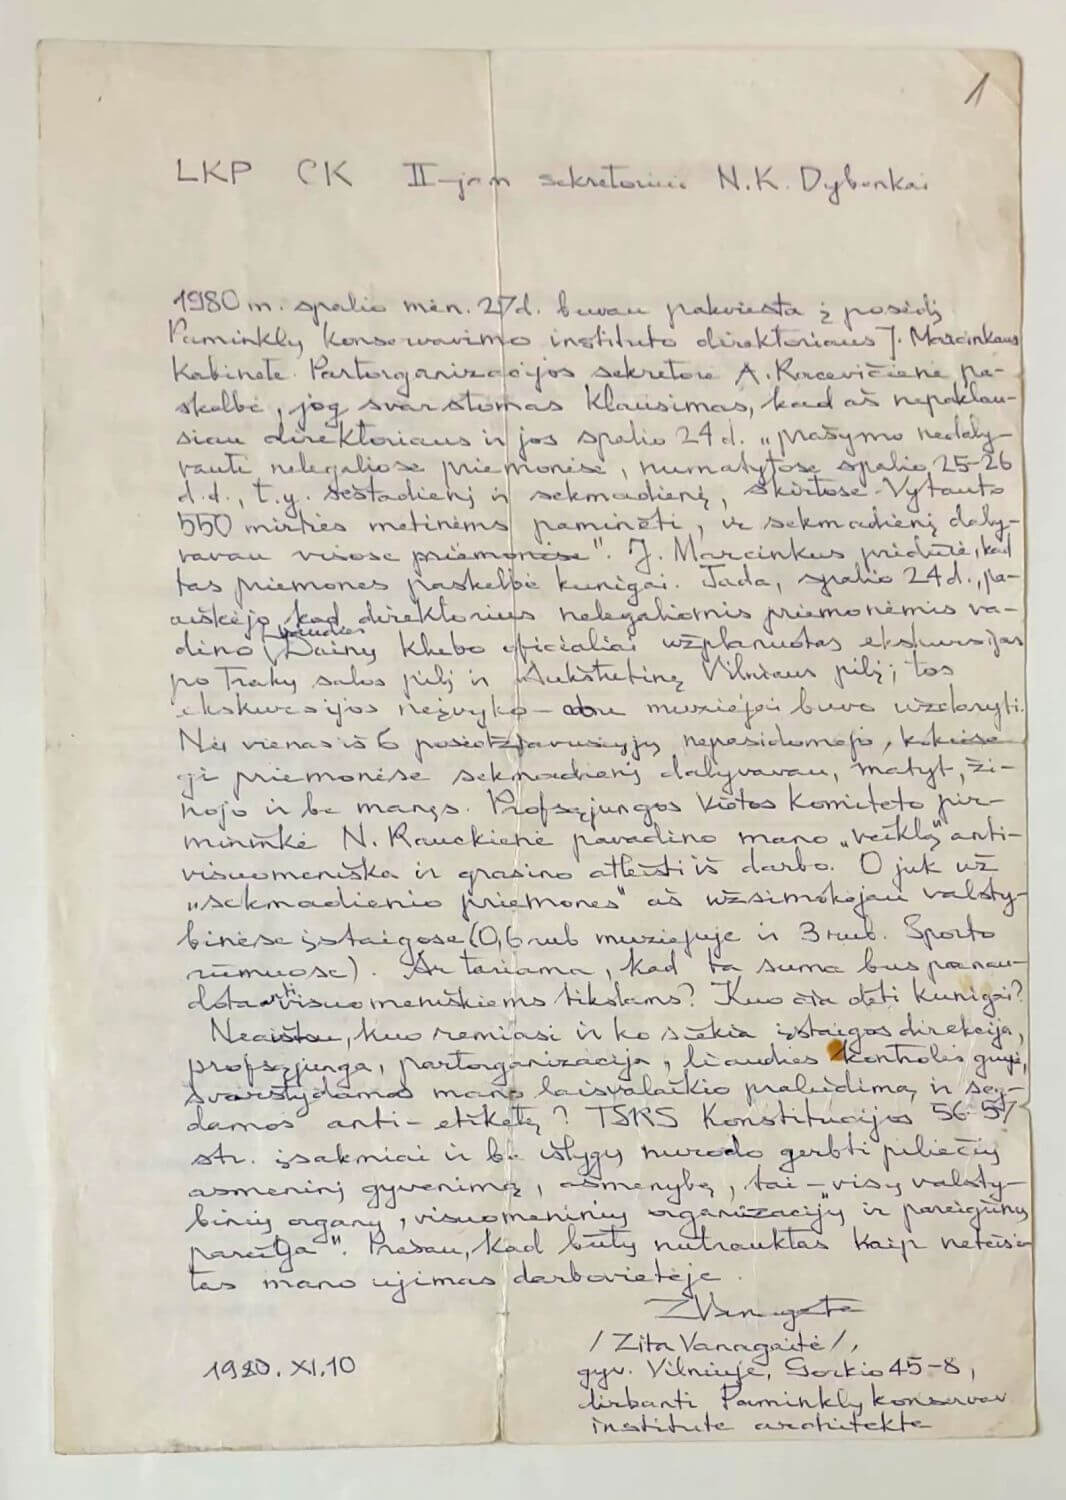 1
LKP CK II-jam sekretoriui N.K. Dybenkai
1980 m. spalio mėn. 27 d. buvau pakviesta į posėdį
Paminklų konservavimo instituto direktoriaus J. Marcinkaus
kabinete. Partorganizacijos sekretorė A. Racevičienė pa-
skelbė, jog svarstomas klausimas, kad aš nepaklau-
siau direktoriaus ir jos spalio 24 d. „prašymo nedaly-
vauti nelegaliose priemonėse, numatytose spalio 25-26
d.d., t.y. šeštadienį ir sekmadienį, skirtose Vytauto
550 mirties metinėms paminėti, ir sekmadienį daly-
vavau visose priemonėse". J. Marcinkus pridūrė, kad
tas priemones paskelbė kunigai. Tada, spalio 24 d., pa-
aiškėjo, kad direktorius nelegaliomis priemonėmis va-
dino liaudies Dainų klubo oficialiai užplanuotas ekskursijas
po Trakų salos pilį ir Aukštutinę Vilniaus pilį; tos
ekskursijos neįvyko – abu muziejai buvo uždaryti.
Nei vienas iš 6 posėdžiavusiųjų nepasidomėjo, kokiose
gi priemonėse sekmadienį dalyvavau, matyt, ži-
nojo ir be manęs. Profsąjungos vietos komiteto pir-
mininkė N. Rauckienė pavadino mano „veiklą" anti-
visuomeniška ir grasino atleisti iš darbo. O juk už
„sekmadienio priemones" aš užsimokėjau valsty-
binėse įstaigose (0,6 rub muziejuje ir 3 rub. Sporto
rūmuose). Ar tariama, kad ta suma bus panau-
dota antivisuomeniškiems tikslams? Kuo čia dėti kunigai?
Neaišku, kuo remiasi ir ko siekia įstaigos direkcija,
profsąjunga, partorganizacija, liaudies kontrolės grupė,
svarstydamos mano laisvalaikio praleidimą ir seg-
damos anti-etiketę? TSRS Konstitucijos 56-57
str. įsakmiai ir be išlygų nurodo gerbti piliečių
asmeninį gyvenimą, asmenybę, tai – visų valsty-
binių organų, visuomeninių organizacijų ir pareigūnų
pareiga". Prašau, kad būtų nutrauktas kaip neteisė-
tas mano ujimas darbovietėje.
ZVanagaitė
/Zita Vanagaitė/,
1980.XI.10
gyv. Vilniuje, Gorkio 45-8,
dirbanti Paminklų konservav
institute architekte